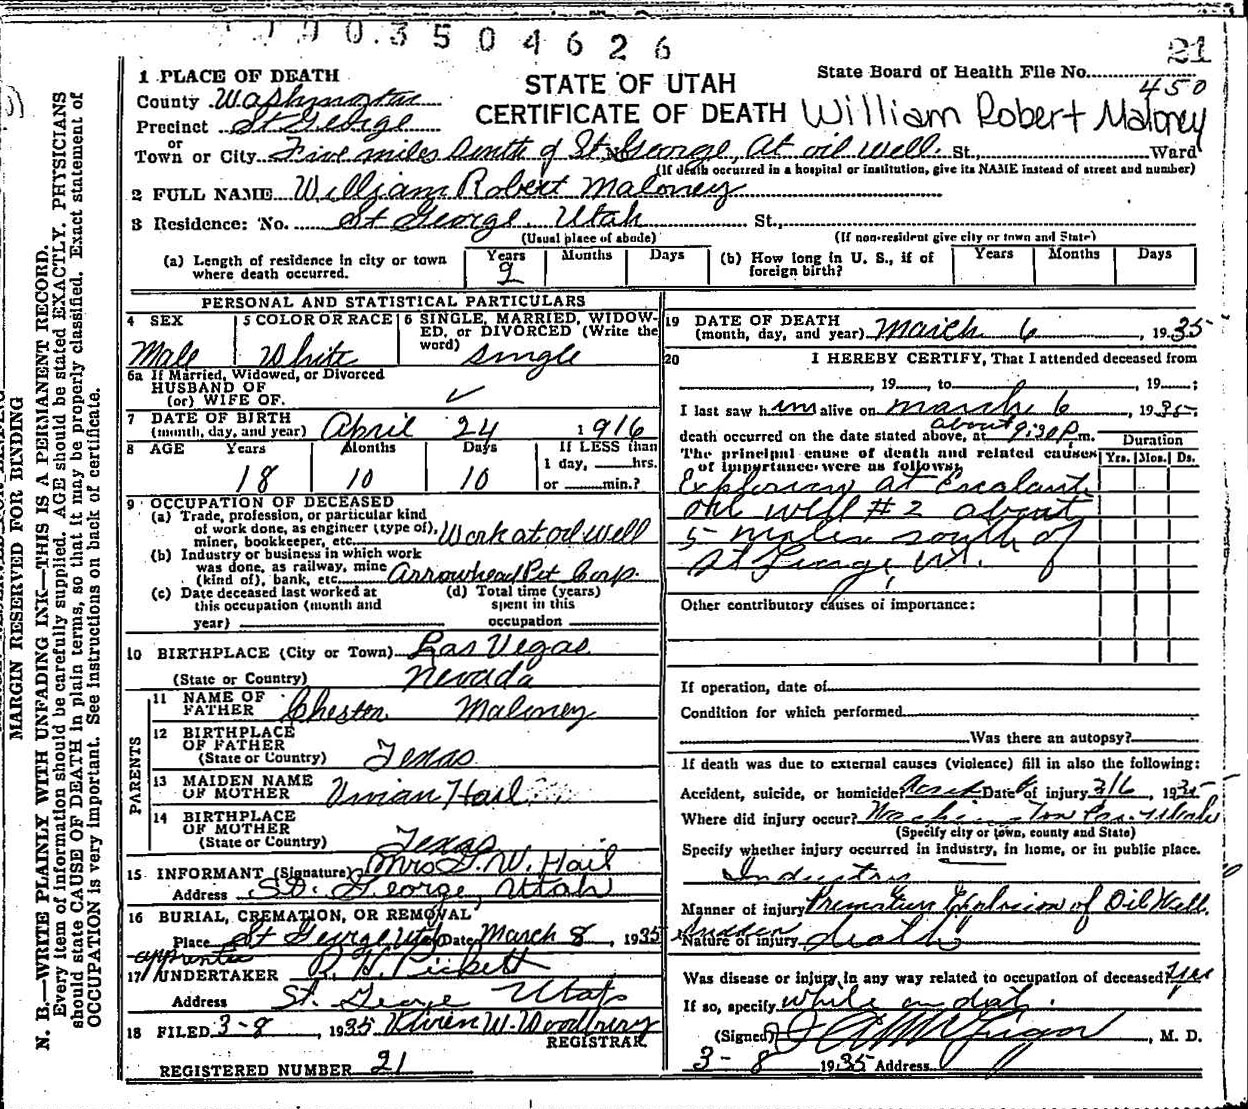 3 5 0 4 6 2 6
21
1 PLACE OF DEATH
STATE OF UTAH
State Board of Health File No.
450
County Washington
CERTIFICATE OF DEATH William Robert Maloney
Precinct St George
or
Town or City Five miles South of St George, At oil well. St, Ward
(If death occurred in a hospital or institution, give its NAME instead of street and number)
2 FULL NAME William Robert Maloney
3 Residence: No. St George, Utah St,
(Usual place of abode) (If non-resident give city or town and State)
(a) Length of residence in city or town where death occurred. Years 9 Months Days
(b) How long in U. S., if of foreign birth? Years Months Days
PERSONAL AND STATISTICAL PARTICULARS
4 SEX Male
5 COLOR OR RACE White
6 SINGLE, MARRIED, WIDOWED, or DIVORCED (Write the word) Single
6a If Married, Widowed, or Divorced
HUSBAND OF
(or) WIFE OF
7 DATE OF BIRTH
(month, day, and year) April 24 1916
8 AGE Years 18 Months 10 Days 10
If LESS than
1 day, hrs.
or min.?
9 OCCUPATION OF DECEASED
(a) Trade, profession, or particular kind
of work done, as engineer (type of),
miner, bookkeeper, etc. Work at oil well
(b) Industry or business in which work
was done, as railway, mine
(kind of), bank, etc. Arrowhead Pet Corp.
(c) Date deceased last worked at
this occupation (month and
year)
(d) Total time (years)
spent in this
occupation
10 BIRTHPLACE (City or Town) Las Vegas
(State or Country) Nevada
PARENTS
11 NAME OF
FATHER Chester Maloney
12 BIRTHPLACE
OF FATHER
(State or Country) Texas
13 MAIDEN NAME
OF MOTHER Vivian Hail
14 BIRTHPLACE
OF MOTHER
(State or Country) Texas
15 INFORMANT (Signature) Mrs G. W. Hail
Address St. George, Utah
16 BURIAL, CREMATION, OR REMOVAL
Place St George Utah Date March 8, 1935
17 UNDERTAKER Pickett
Address St. George Utah
18 FILED 3-8, 1935 W. Woodbury
REGISTRAR
REGISTERED NUMBER 21
19 DATE OF DEATH
(month, day, and year) March 6, 1935
20 I HEREBY CERTIFY, That I attended deceased from
, 19 , to , 19 ;
I last saw him alive on March 6, 1935,
death occurred on the date stated above, at about 9:30 P. m.
The principal cause of death and related causes
of importance were as follows:
Duration
Yrs. Mos. Ds.
Explosion at Escalante
oil well #2 about
5 miles south of
St George, Ut.
Other contributory causes of importance:
If operation, date of
Condition for which performed
Was there an autopsy?
If death was due to external causes (violence) fill in also the following:
Accident, suicide, or homicide? Date of injury 3/6, 1935
Where did injury occur? Washington Utah
(Specify city or town, county and State)
Specify whether injury occurred in industry, in home, or in public place.
Industry
Manner of injury Premature Explosion of Oil Well.
Nature of injury Sudden death
Was disease or injury in any way related to occupation of deceased? Yes
If so, specify while on
(Signed) , M. D.
3-8 1935 Address
MARGIN RESERVED FOR BINDING
N. B.—WRITE PLAINLY WITH UNFADING INK—THIS IS A PERMANENT RECORD.
Every item of information should be carefully supplied. AGE should be stated EXACTLY. PHYSICIANS
should state CAUSE OF DEATH in plain terms, so that it may be properly classified. Exact statement of
OCCUPATION is very important. See instructions on back of certificate.